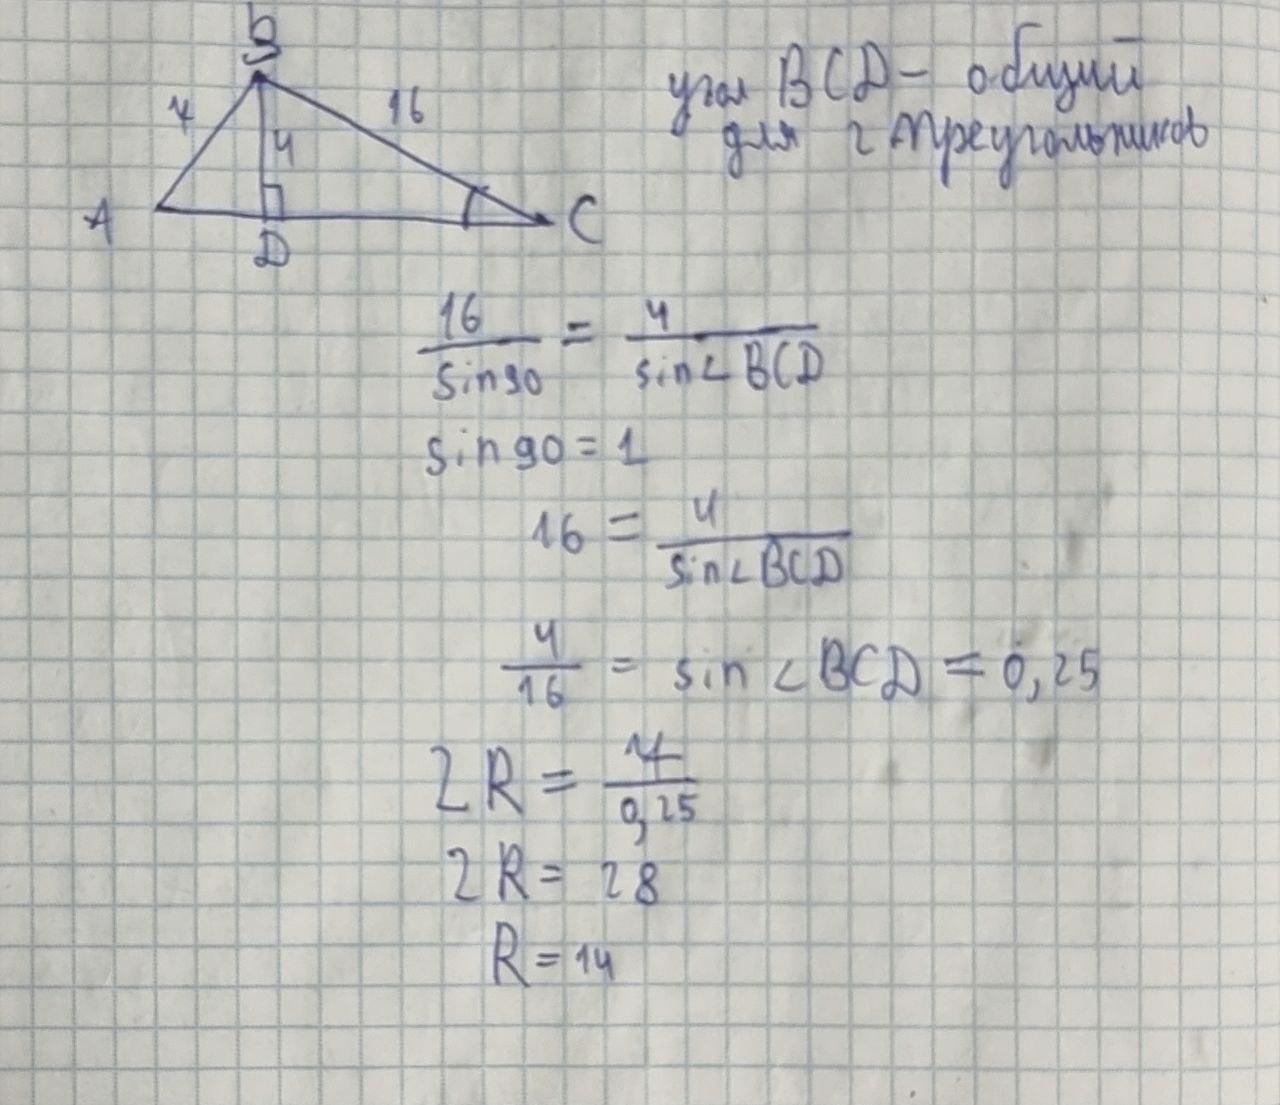 B
7
16
4
A
D
C
угол BCD - общий
для 2 треугольников
16/sin90 = 4/sin∠BCD
sin90 = 1
16 = 4/sin∠BCD
4/16 = sin∠BCD = 0,25
2R = 7/0,25
2R = 28
R = 14